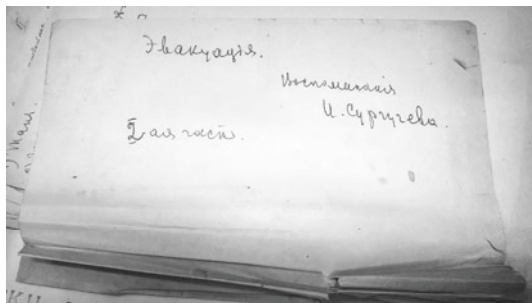 Эвакуація.
Воспоминанія
И. Сургучева.
2ая част.